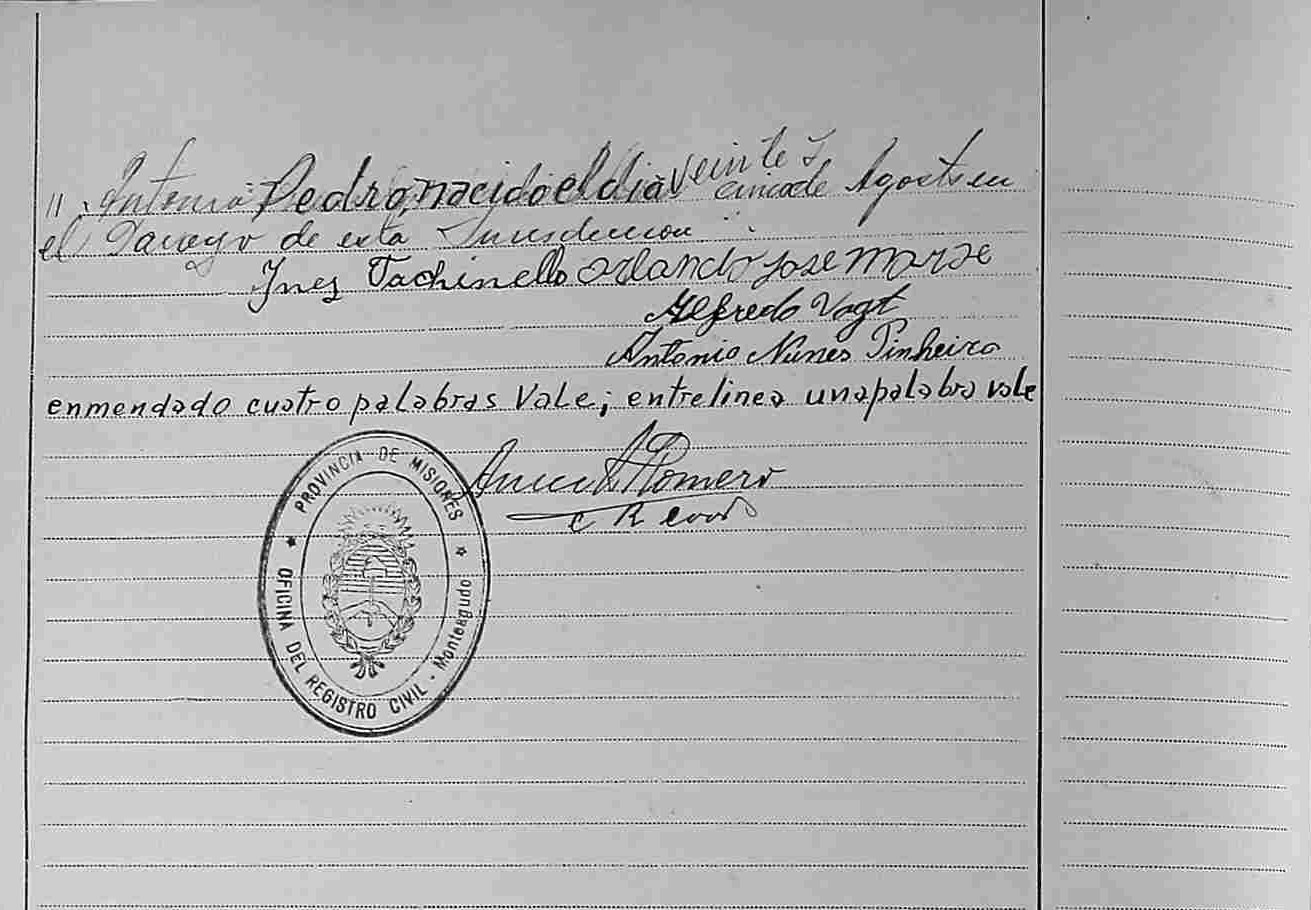 11. Antonio Pedro, nacido el dia veinte y cinco de Agosto en
el Parayso de esta Jurisdiccion
Ines Tachinello Orlando Jose Marse
Alfredo Vogt
Antonio Nunes Pinheiro
enmendado cuatro palabras Vale; entrelinea una palabra vale
Romero
PROVINCIA DE MISIONES
OFICINA DEL REGISTRO CIVIL - Monteagudo